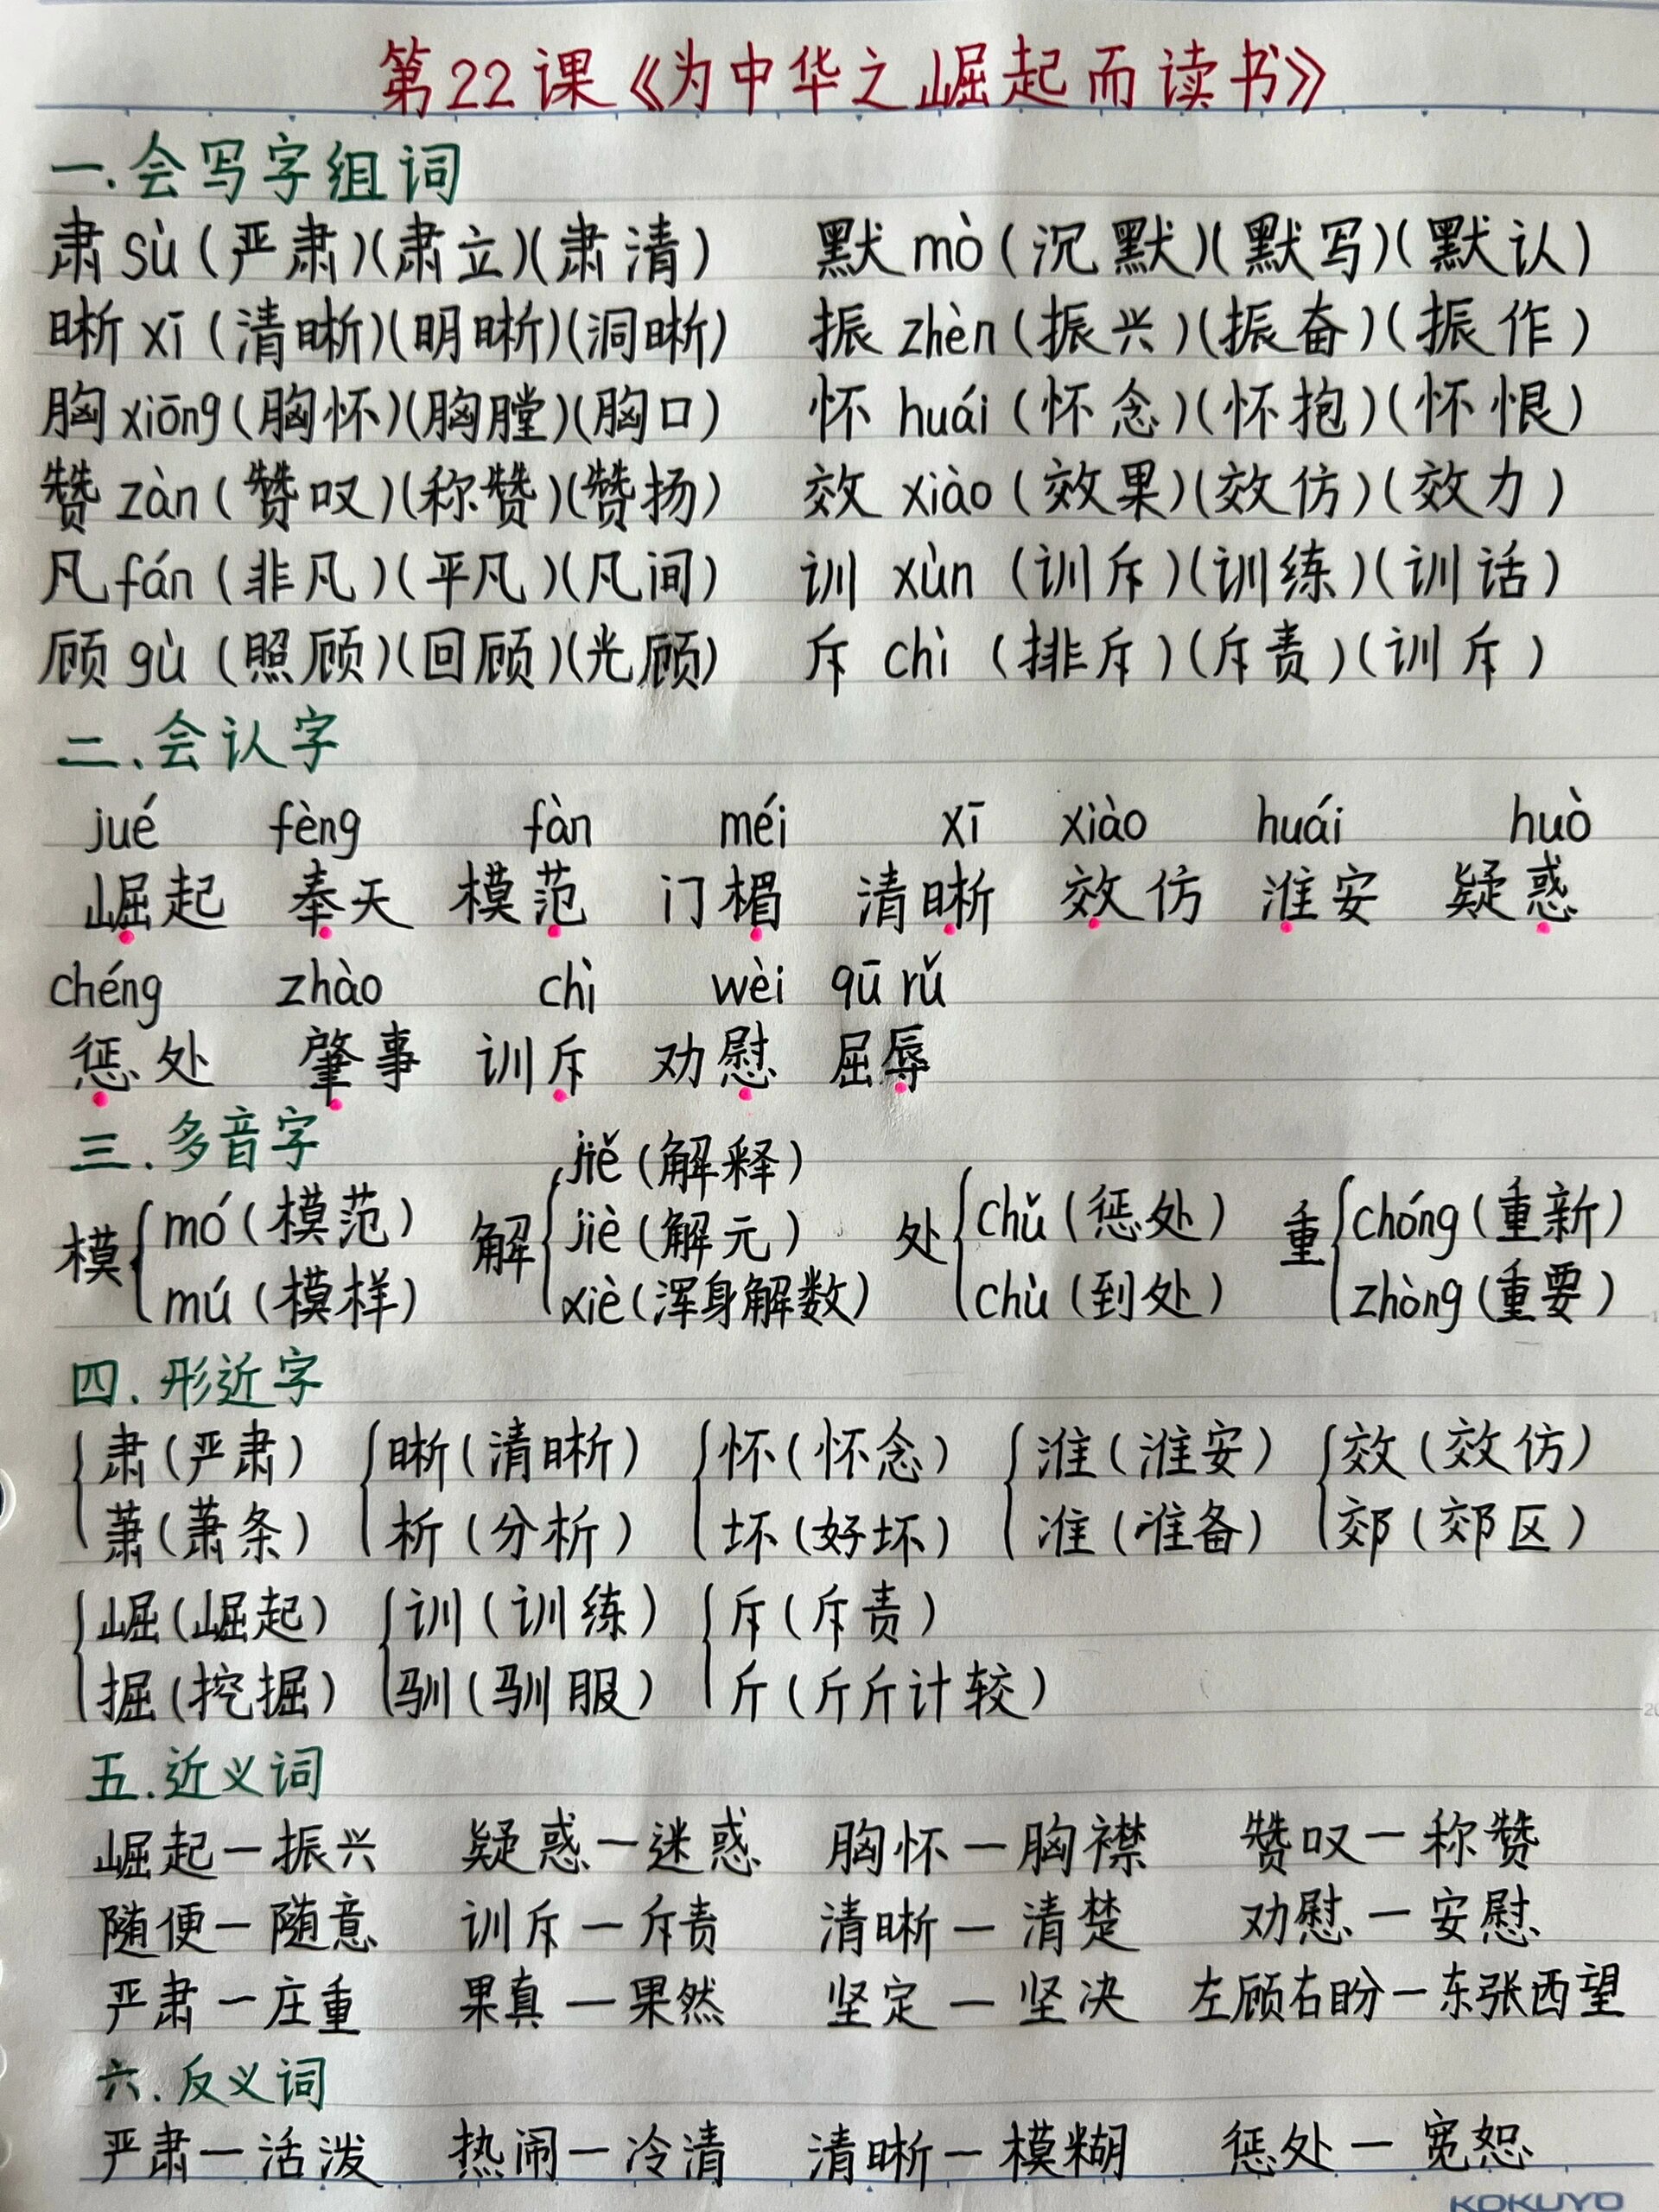 第22课《为中华之崛起而读书》
一.会写字组词
肃 sù(严肃)(肃立)(肃清) 默 mò(沉默)(默写)(默认)
晰 xī(清晰)(明晰)(洞晰) 振 zhèn(振兴)(振奋)(振作)
胸 xiōng(胸怀)(胸膛)(胸口) 怀 huái(怀念)(怀抱)(怀恨)
赞 zàn(赞叹)(称赞)(赞扬) 效 xiào(效果)(效仿)(效力)
凡 fán(非凡)(平凡)(凡间) 训 xùn(训斥)(训练)(训话)
顾 gù(照顾)(回顾)(光顾) 斥 chì(排斥)(斥责)(训斥)
二、会认字
jué fèng fàn méi xī xiào huái huò
崛起 奉天 模范 门楣 清晰 效仿 淮安 疑惑
chéng zhào chì wèi qū rǔ
惩处 肇事 训斥 劝慰 屈辱
三.多音字
模{mó(模范) mú(模样) 解{jiě(解释) jiè(解元) xiè(浑身解数) 处{chǔ(惩处) chù(到处) 重{chóng(重新) zhòng(重要)
四.形近字
肃(严肃) 晰(清晰) 怀(怀念) 淮(淮安) 效(效仿)
萧(萧条) 析(分析) 坏(好坏) 准(准备) 郊(郊区)
崛(崛起) 训(训练) 斥(斥责)
掘(挖掘) 驯(驯服) 斤(斤斤计较)
五.近义词
崛起—振兴 疑惑—迷惑 胸怀—胸襟 赞叹—称赞
随便—随意 训斥—斥责 清晰—清楚 劝慰—安慰
严肃—庄重 果真—果然 坚定—坚决 左顾右盼—东张西望
六.反义词
严肃—活泼 热闹—冷清 清晰—模糊 惩处—宽恕
KOKUYO